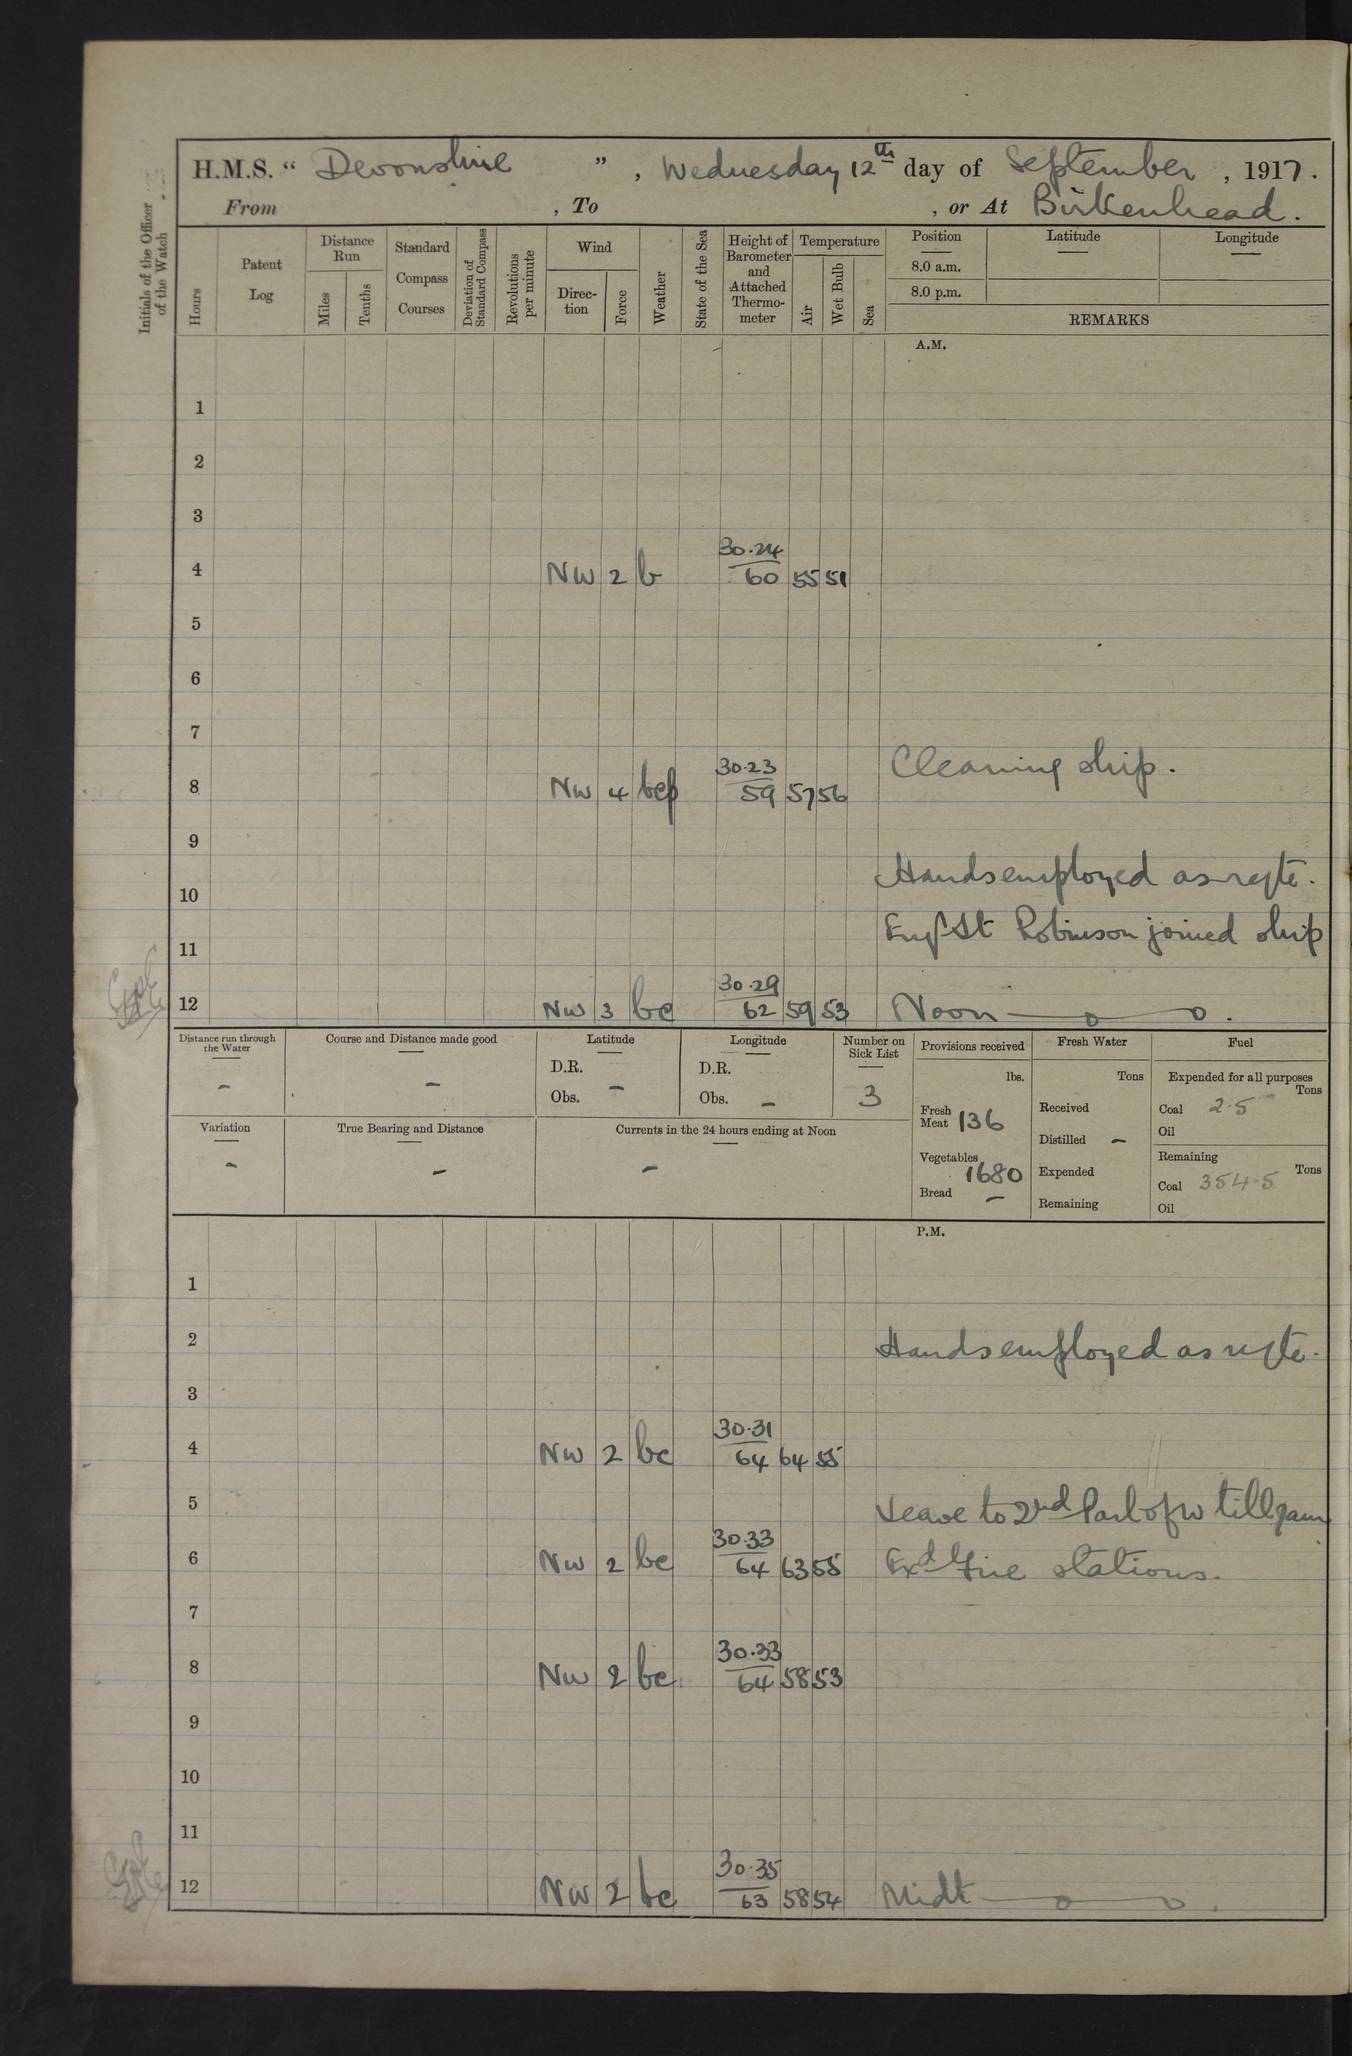 H.M.S. “ Devonshire ” , Wednesday 12th day of September , 1917.
From , To , or At Birkenhead.
Initials of the Officer of the Watch
Hours
Patent Log
Distance Run
Miles
Tenths
Standard Compass Courses
Deviation of Standard Compass
Revolutions per minute
Wind
Direc-tion
Force
Weather
State of the Sea
Height of Barometer and Attached Thermo-meter
Temperature
Air
Wet Bulb
Sea
Position
8.0 a.m.
8.0 p.m.
Latitude
Longitude
REMARKS
A.M.
1
2
3
30.24
4 NW 2 b 60 55 51
5
6
7
Cleaning ship.
30.23
8 NW 4 bcp 59 57 56
9
Hands employed as reqte.
10
Eng Lt Robinson joined ship
11
30.29
12 NW 3 bc 62 59 53 Noon
Distance run through the Water
-
Course and Distance made good
-
Latitude
D.R.
Obs. -
Longitude
D.R.
Obs. -
Number on Sick List
3
Provisions received
lbs.
Fresh Meat 136
Vegetables 1680
Bread -
Fresh Water
Tons
Received
Distilled -
Expended
Remaining
Fuel
Expended for all purposes
Tons
Coal 2.5
Oil
Remaining
Tons
Coal 354.5
Oil
Variation
-
True Bearing and Distance
-
Currents in the 24 hours ending at Noon
-
P.M.
1
2 Hands employed as reqte.
3
30.31
4 NW 2 bc 64 64 55
5 Leave to 2nd Part of W till 7am
30.33
6 NW 2 bc 64 63 55 Exd Fire stations.
7
30.33
8 NW 2 bc 64 58 53
9
10
11
30.35
12 NW 2 bc 63 58 54 Midt